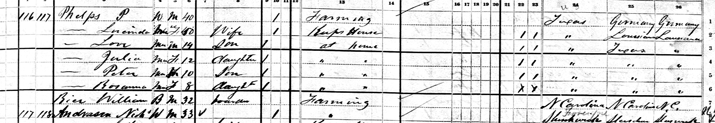 116 117 Phelps P W M 40 1 Farming Texas Germany Germany
— Lucinda Mu F 30 Wife 1 Keeps House 1 1 " Louisiana Louisiana
— Lon Mu M 14 Son 1 at home " Texas "
— Julia Mu F 12 Daughter 1 " " 1 1 " " "
— Peter Mu M 10 Son 1 " " 1 1 " " "
— Rosanna Mu F 8 Daught 1 " " X X " " "
William B M 32 Farming N Carolina N Carolina N C
117 118 W M 33 1 "
13 15 16 17 18 19 20 21 22 23 24 25 26
1
2
3
4
5
6